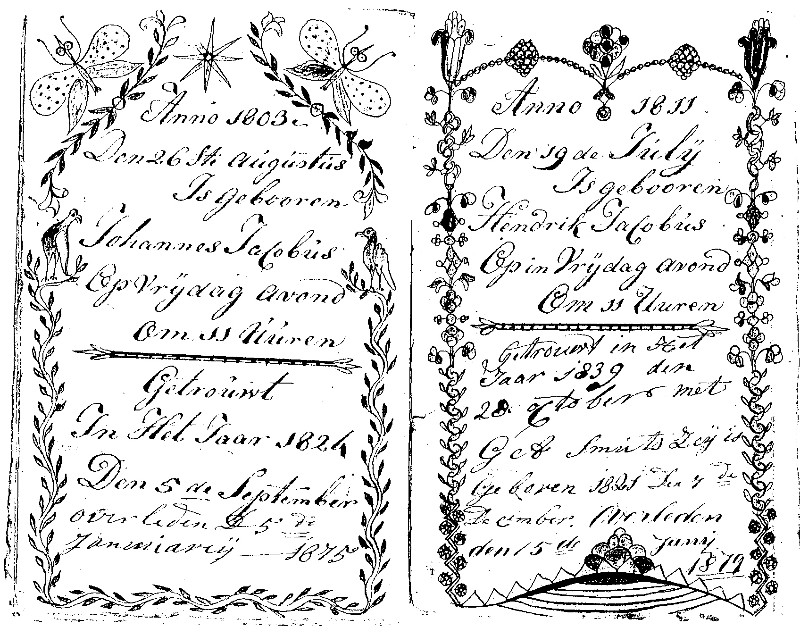 Anno 1803
Den 26 Sti Augustus
Is Gebooren
Johannes Jacobus
Op Vrÿdag Avond
Om 11 Uuren
Getrouwt
In Het Jaar 1824
Den 5 de September
overleden D 5 de
Januuiarij 1875
Anno 1811
Den 19 de Julÿ
Is gebooren
Hendrik Jacobus
Op in Vrÿdag avond
Om 11 Uuren
Getrouwt in Het
Jaar 1839 den
28 October met
Smuts Zij is
Geboren 1821 den 7 de
December. Overleden
den 15 de Junÿ
1879